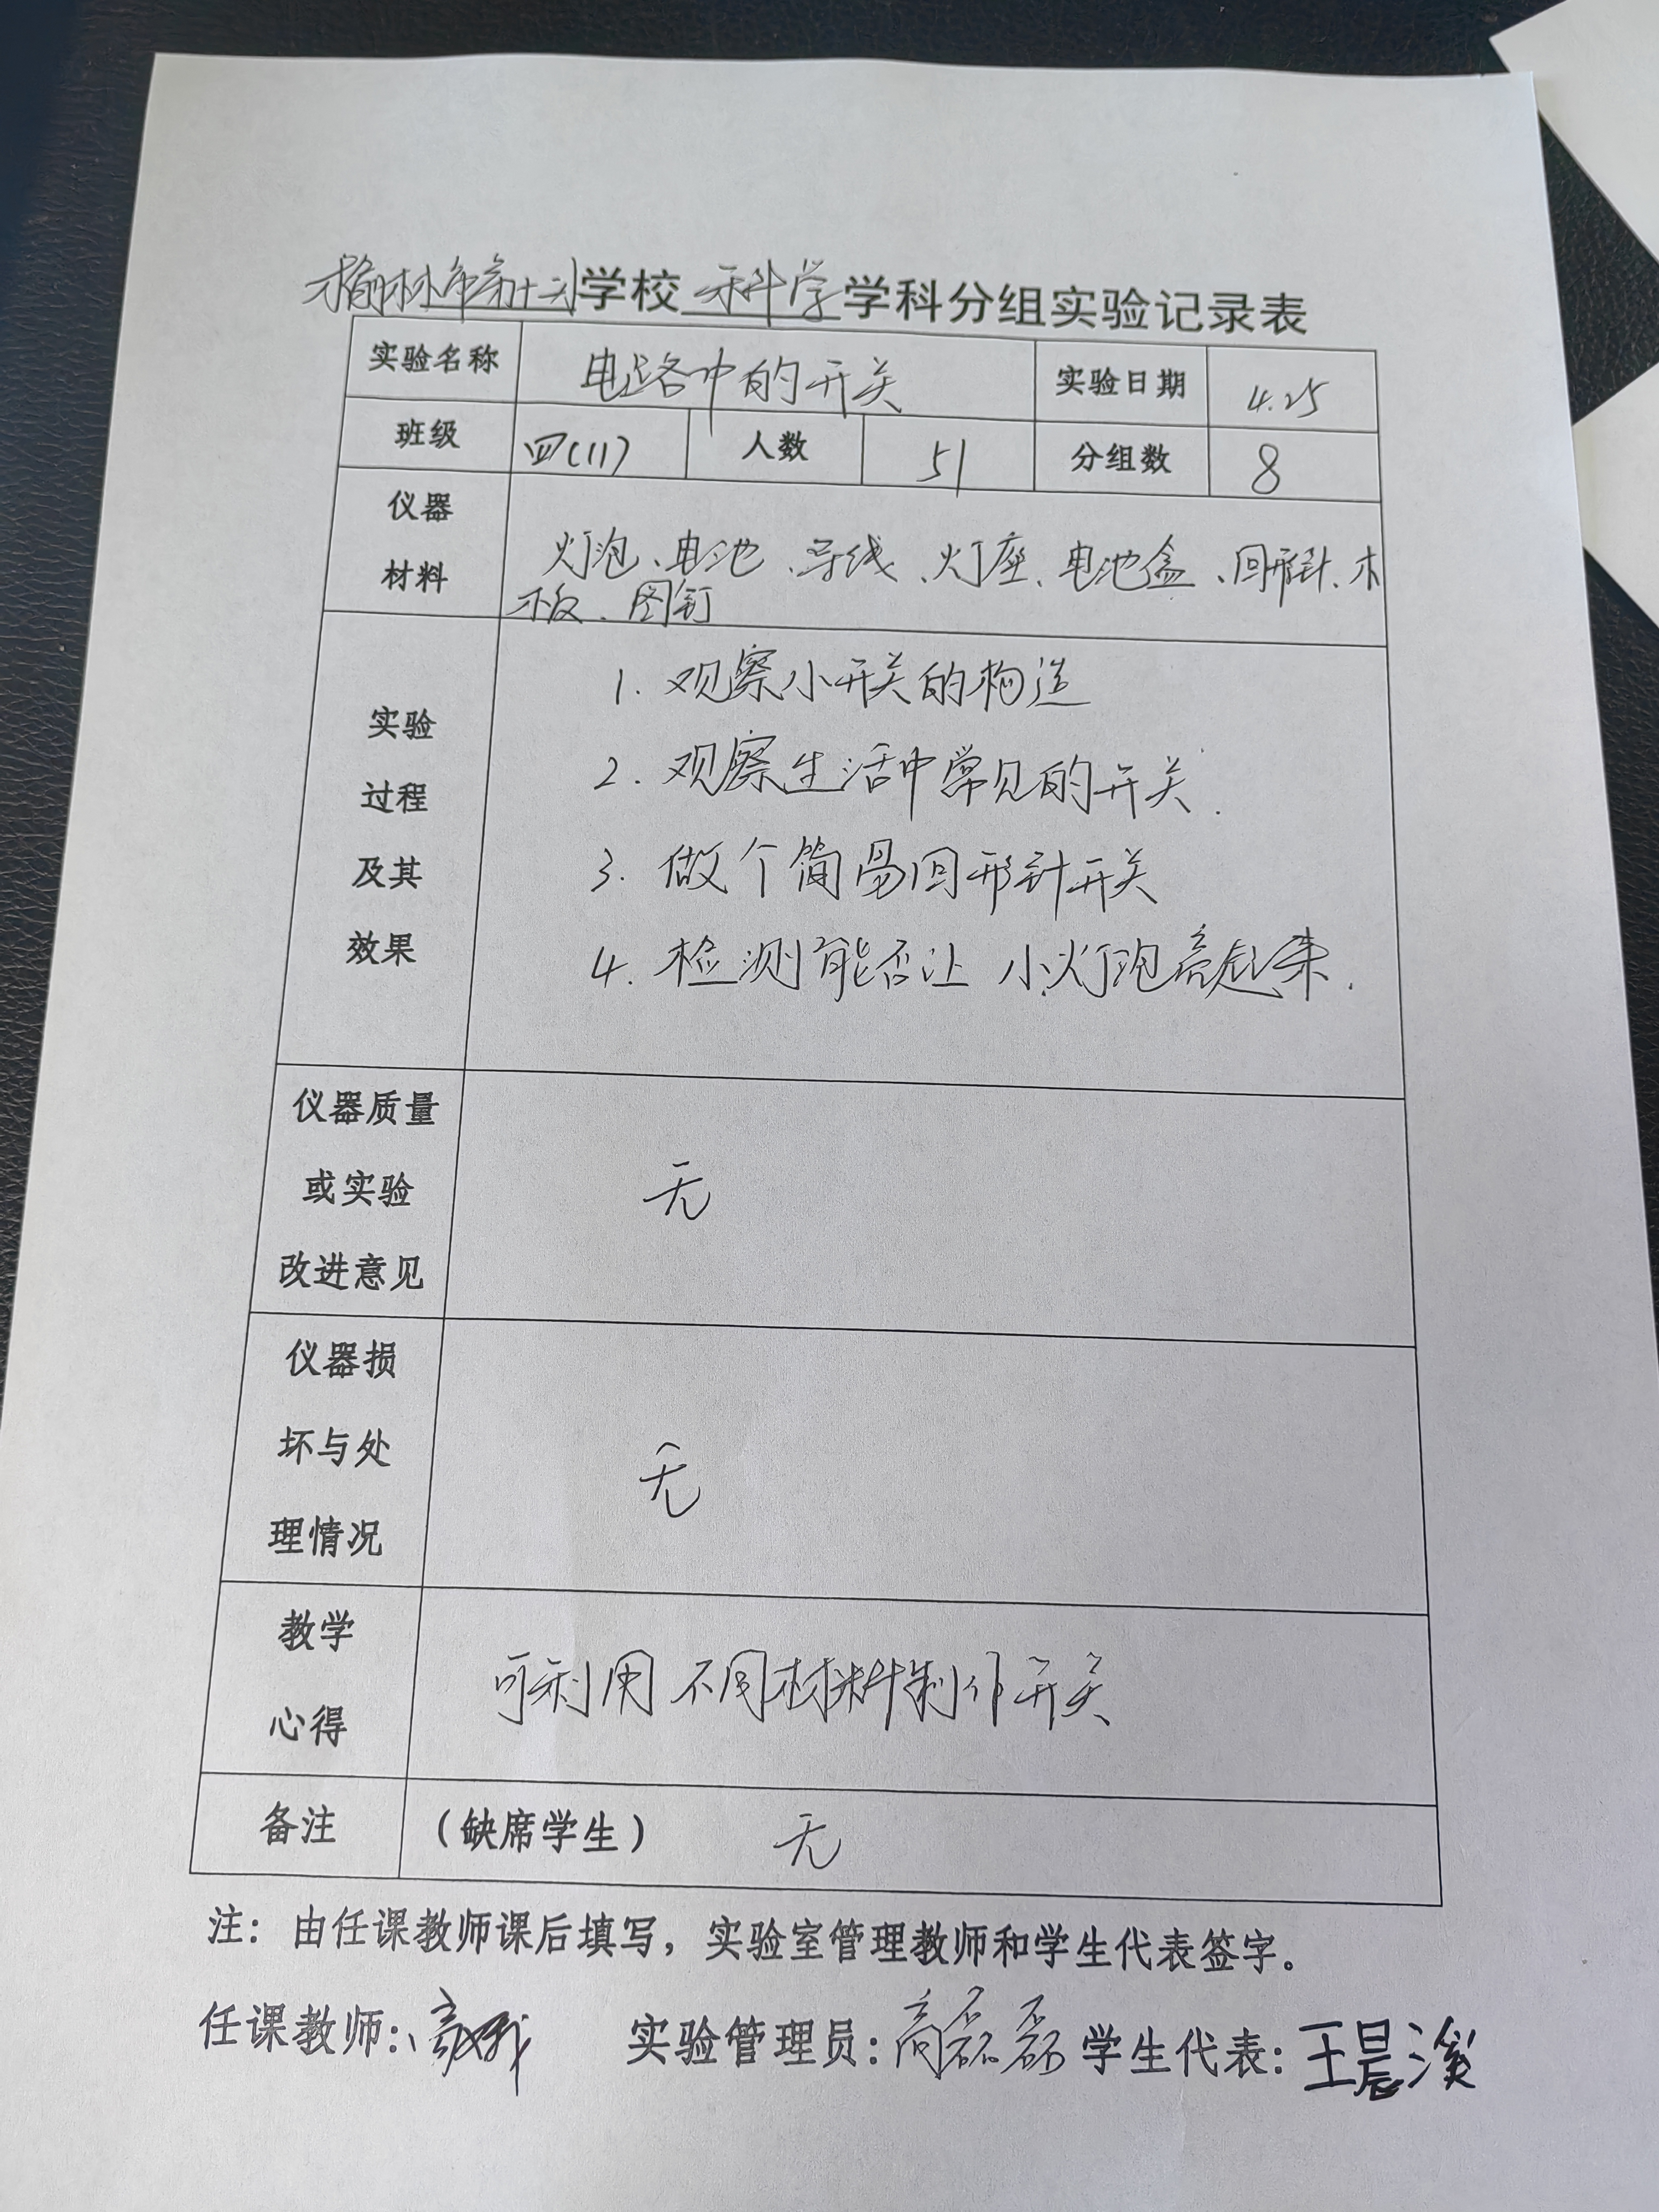 榆林市第十二小学校 科学 学科分组实验记录表
实验名称 电路中的开关 实验日期 4.25
班级 四(11) 人数 51 分组数 8
仪器
材料
灯泡、电池、导线、灯座、电池盒、回形针、木
板、图钉
实验
过程
及其
效果
1. 观察小开关的构造
2. 观察生活中常见的开关.
3. 做个简易回形针开关
4. 检测能否让小灯泡亮起来.
仪器质量
或实验
改进意见
无
仪器损
坏与处
理情况
无
教学
心得
可利用不同材料制作开关
备注 (缺席学生) 无
注：由任课教师课后填写，实验室管理教师和学生代表签字。
任课教师: 实验管理员:高磊磊 学生代表:王晨溪